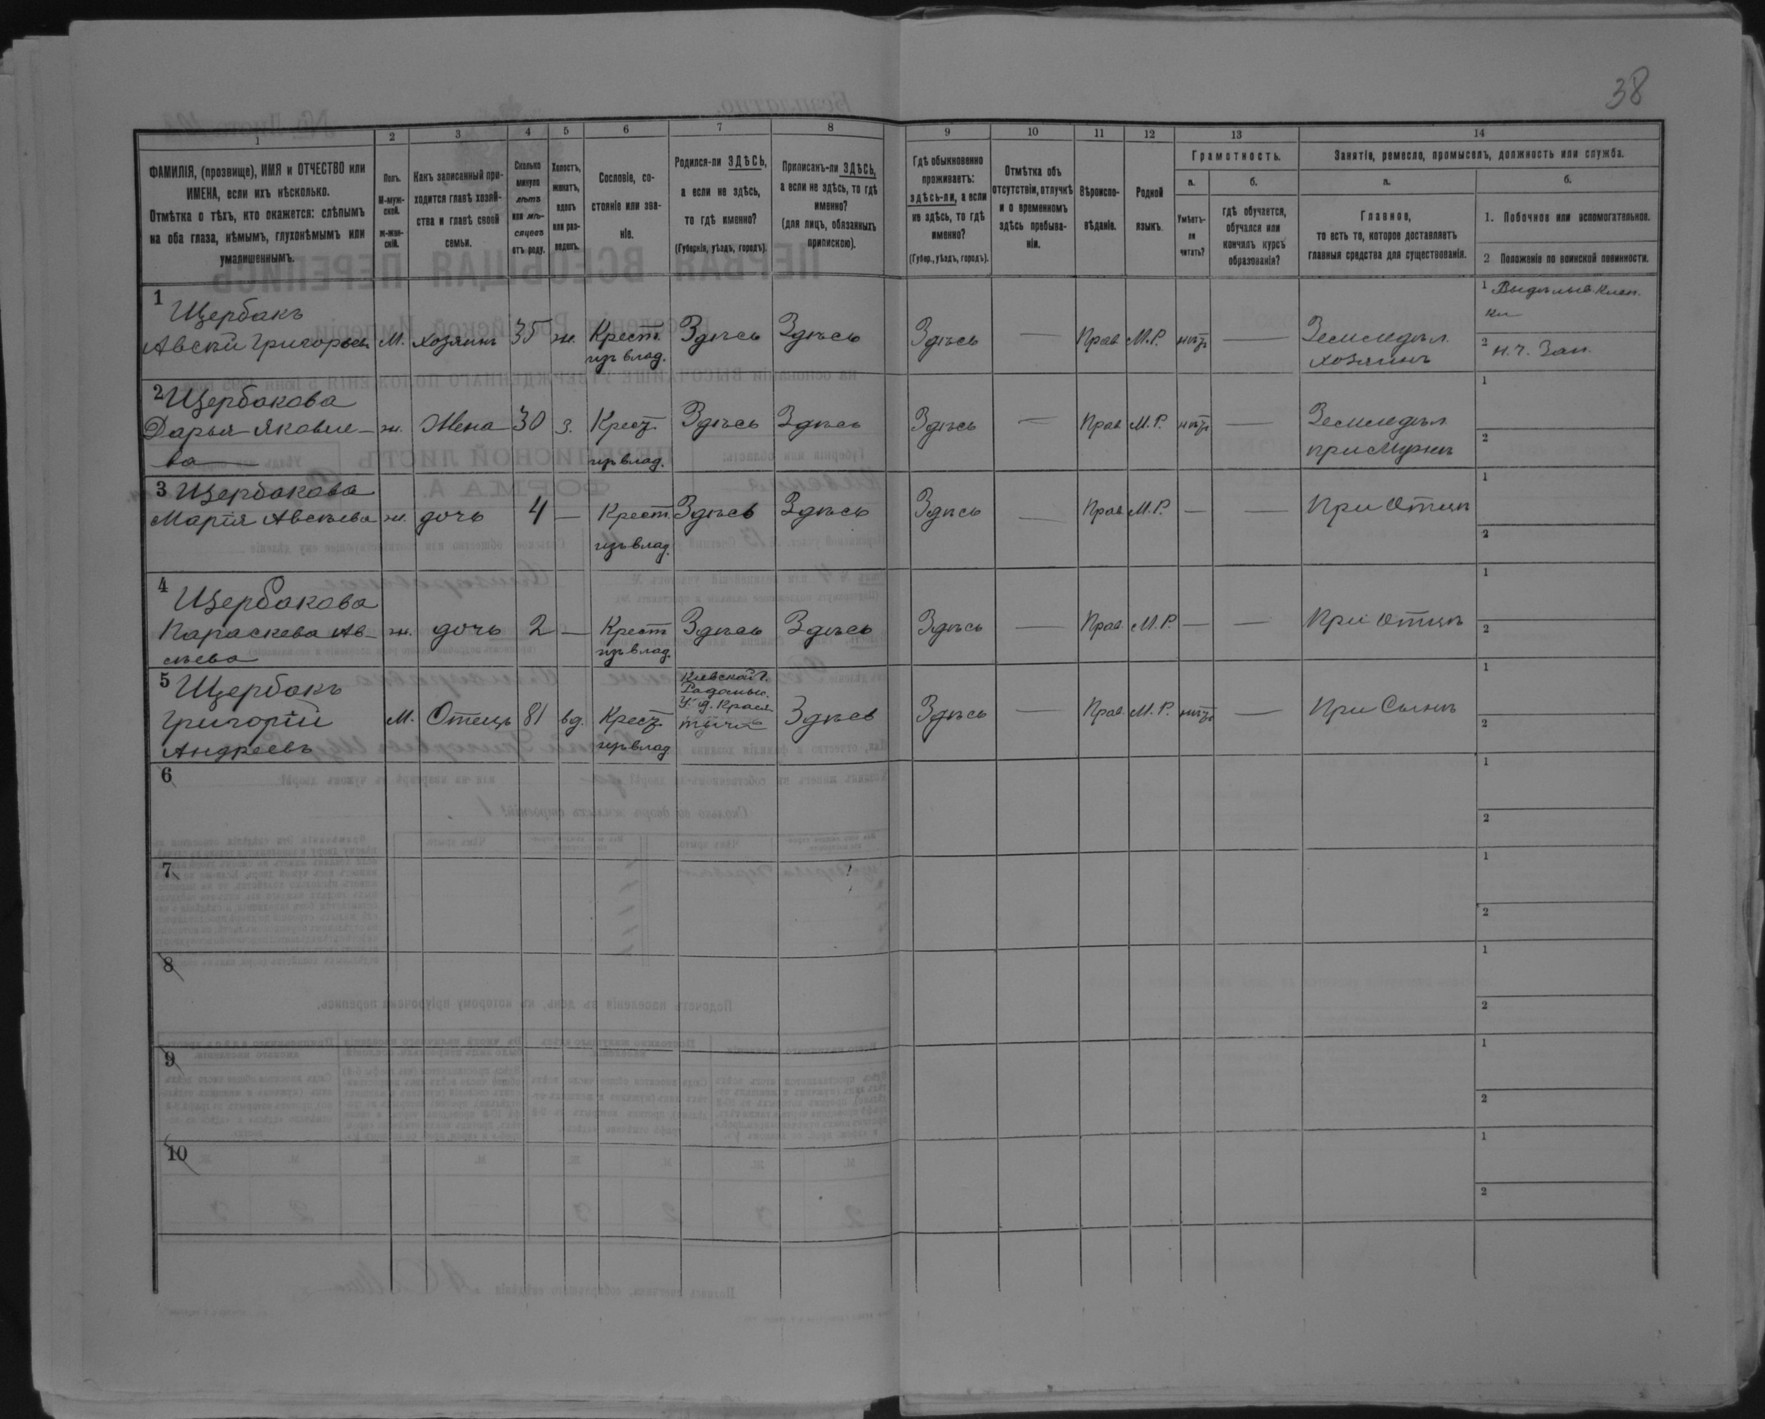 38
1 2 3 4 5 6 7 8 9 10 11 12 13 14
ФАМИЛІЯ, (прозвище), ИМЯ и ОТЧЕСТВО или
ИМЕНА, если ихъ нѣсколько.
Отмѣтка о тѣхъ, кто окажется: слѣпымъ
на оба глаза, нѣмымъ, глухонѣмымъ или
умалишеннымъ.
Полъ.
М-муж-
ской.
ж-жен-
скій.
Какъ записанный при-
ходится главѣ хозяй-
ства и главѣ своей
семьи.
Сколько
минуло
лѣтъ
или мѣ-
сяцевъ
отъ роду.
Холостъ,
женатъ,
вдовъ
или раз-
веденъ.
Сословіе, со-
стояніе или зва-
ніе.
Родился-ли ЗДѢСЬ,
а если не здѣсь,
то гдѣ именно?
(Губернія, уѣздъ, городъ).
Приписанъ-ли ЗДѢСЬ,
а если не здѣсь, то гдѣ
именно?
(для лицъ, обязанныхъ
припискою).
Гдѣ обыкновенно
проживаетъ:
здѣсь-ли, а если
не здѣсь, то гдѣ
именно?
(Губер., уѣздъ, городъ).
Отмѣтка объ
отсутствіи, отлучкѣ
и о временномъ
здѣсь пребыва-
ніи.
Вѣроиспо-
вѣданіе.
Родной
языкъ.
Грамотность.
а.
Умѣетъ-
ли
читать?
б.
гдѣ обучается,
обучался или
кончилъ курсъ
образованія?
Занятія, ремесло, промыселъ, должность или служба.
а.
Главное,
то есть то, которое доставляетъ
главныя средства для существованія.
б.
1. Побочное или вспомогательное.
2 Положеніе по воинской повинности.
1 Щербакъ
Авсѣй Григорьевъ М. хозяинъ 35 ж. Крест. изъ влад. Здѣсь Здѣсь Здѣсь — Прав. М.Р. нѣтъ — Земледѣл. хозяинъ
1
2 н.ч. Зап.
2 Щербакова
Дарья Яковле-
ва ж. Жена 30 з. Крест. изъ влад. Здѣсь Здѣсь Здѣсь — Прав. М.Р. нѣтъ — Земледѣл. при Мужѣ
1
2
3 Щербакова
Марія Авсѣева ж. дочь 4 — Крест. изъ влад. Здѣсь Здѣсь Здѣсь — Прав. М.Р. — — При Отцѣ
1
2
4 Щербакова
Параскева Ав-
сѣева ж. дочь 2 — Крест. изъ влад. Здѣсь Здѣсь Здѣсь — Прав. М.Р. — — При Отцѣ
1
2
5 Щербакъ
Григорій
Андреевъ М. Отецъ 81 вд. Крест. изъ влад. Кіевской Г. Радомыс. У. Здѣсь Здѣсь — Прав. М.Р. нѣтъ — При Сынѣ
1
2
6
1
2
7
1
2
8
1
2
9
1
2
10
1
2